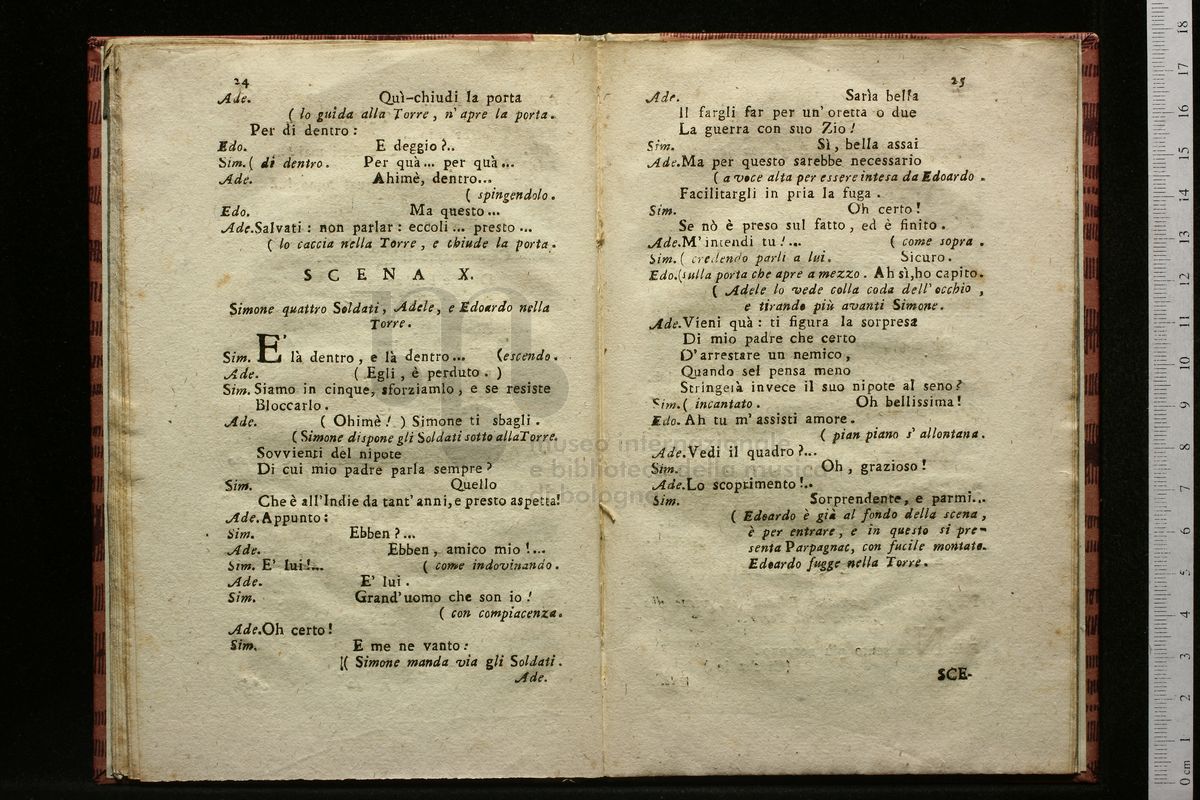 24
Ade. Quì-chiudi la porta
( lo guida alla Torre , n' apre la porta .
Per di dentro :
Edo. E deggio ?..
Sim. ( di dentro . Per quà ... per quà ...
Ade. Ahimè, dentro...
( spingendolo .
Edo. Ma questo ...
Ade. Salvati : non parlar : eccoli ... presto ...
( lo caccia nella Torre , e chiude la porta .
SCENA X.
Simone quattro Soldati , Adele, e Edoardo nella
Torre .
Sim. E' là dentro , e là dentro ... (escendo .
Ade. ( Egli , è perduto . )
Sim. Siamo in cinque, sforziamlo , e se resiste
Bloccarlo .
Ade. ( Ohimè ! ) Simone ti sbagli .
( Simone dispone gli Soldati sotto alla Torre.
Sovvienti del nipote
Di cui mio padre parla sempre ?
Sim. Quello
Che è all' Indie da tant' anni, e presto aspetta!
Ade. Appunto :
Sim. Ebben ? ...
Ade. Ebben , amico mio !...
Sim. E' lui !... ( come indovinando .
Ade. E' lui .
Sim. Grand' uomo che son io !
( con compiacenza .
Ade. Oh certo !
Sim. E me ne vanto :
]( Simone manda via gli Soldati .
Ade.
25
Ade. Sarìa bella
Il fargli far per un' oretta o due
La guerra con suo Zio !
Sim. Sì , bella assai
Ade. Ma per questo sarebbe necessario
( a voce alta per essere intesa da Edoardo .
Facilitargli in pria la fuga .
Sim. Oh certo !
Se nò è preso sul fatto , ed è finito .
Ade. M' intendi tu ! ... ( come sopra .
Sim. ( credendo parli a lui . Sicuro .
Edo. (sulla porta che apre a mezzo . Ah sì, ho capito.
( Adele lo vede colla coda dell' occhio ,
e tirando più avanti Simone .
Ade. Vieni quà : ti figura la sorpresa
Di mio padre che certo
D' arrestare un nemico ,
Quando sel pensa meno
Stringerà invece il suo nipote al seno ?
Sim. ( incantato . Oh bellissima !
Edo. Ah tu m' assisti amore .
( pian piano s' allontana .
Ade. Vedi il quadro ?...
Sim. Oh , grazioso !
Ade. Lo scoprimento !..
Sim. Sorprendente , e parmi...
( Edoardo è già al fondo della scena ,
è per entrare , e in questo si pre-
senta Parpagnac, con fucile montato.
Edoardo fugge nella Torre .
SCE-
museo internazionale
e biblioteca della musica
di bologna
0 cm 1 2 3 4 5 6 7 8 9 10 11 12 13 14 15 16 17 18